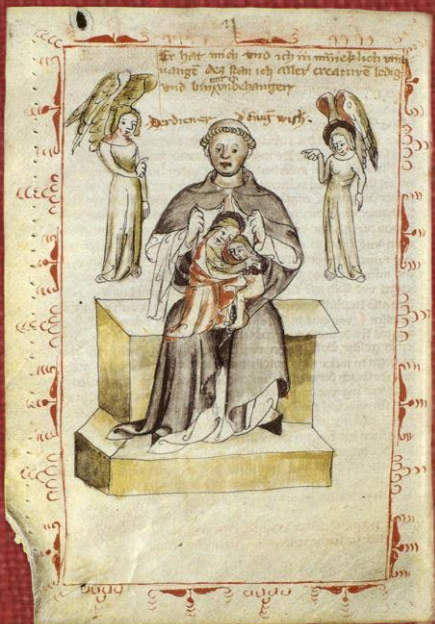 Er hat mich vnd ich in minneklich vm
uange des stan ich aller creature ledig
vnd bin mit vnbehangen
Der diener d ewig wish.